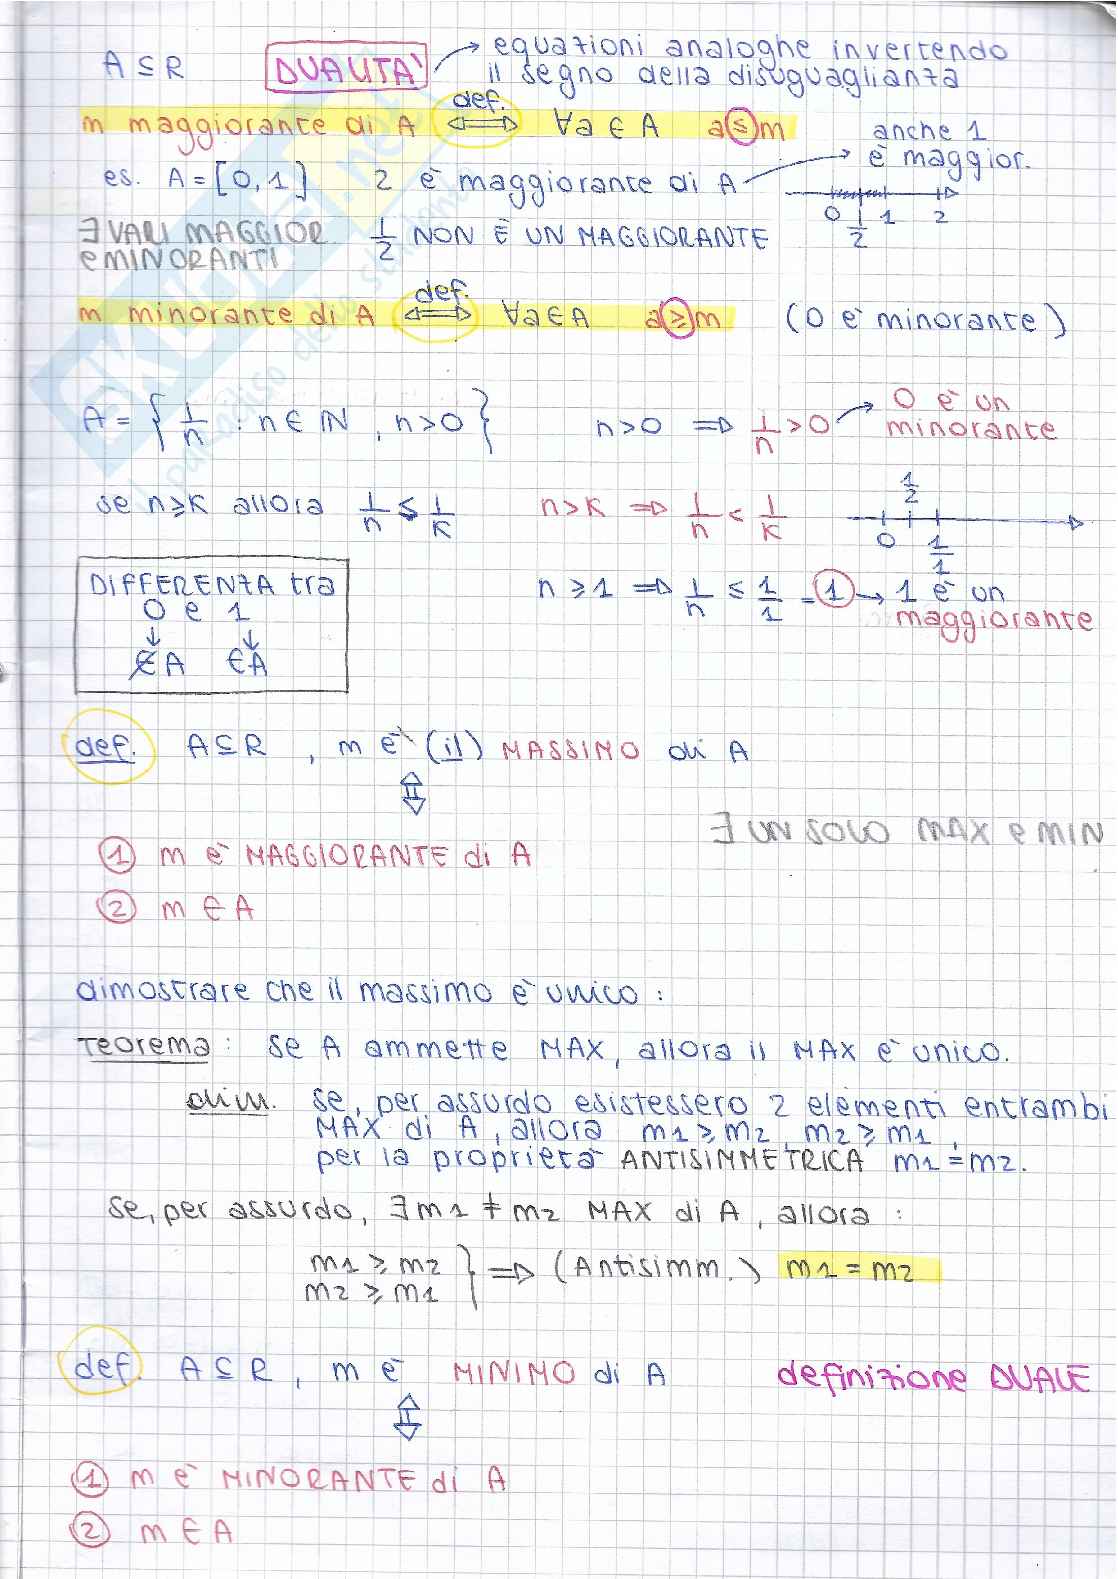 A ⊆ R DUALITA' → equazioni analoghe invertendo
il segno della disuguaglianza
m maggiorante di A ⇔ def. ∀a ∈ A a ≤ m
anche 1
è maggior.
es. A = [0,1] 2 è maggiorante di A
0 1/2 1 2
∃ VARI MAGGIOR. 1/2 NON È UN MAGGIORANTE
e MINORANTI
m minorante di A ⇔ def. ∀a∈A a ≥ m (0 è minorante)
A = { 1/n : n ∈ IN , n>0 } n>0 ⇒ 1/n > 0 → 0 è un
minorante
se n ≥ K allora 1/n ≤ 1/K n>K ⇒ 1/n < 1/K
0 1/2 1/1
DIFFERENZA tra
0 e 1
↓ ↓
∉A ∈A
n ≥ 1 ⇒ 1/n ≤ 1/1 = 1 → 1 è un
maggiorante
def. A⊆R , m è (il) MASSIMO di A
⇕
∃ UN SOLO MAX e MIN
① m è MAGGIORANTE di A
② m ∈ A
dimostrare che il massimo è unico :
Teorema : se A ammette MAX, allora il MAX è unico.
dim. se, per assurdo esistessero 2 elementi entrambi
MAX di A, allora m1 ≥ m2, m2 ≥ m1,
per la proprietà ANTISIMMETRICA m1 = m2.
Se, per assurdo, ∃ m1 ≠ m2 MAX di A, allora :
m1 ≥ m2
m2 ≥ m1 } ⇒ (Antisimm.) m1 = m2
def. A ⊆ R , m è MINIMO di A definizione DUALE
⇕
① m è MINORANTE di A
② m ∈ A